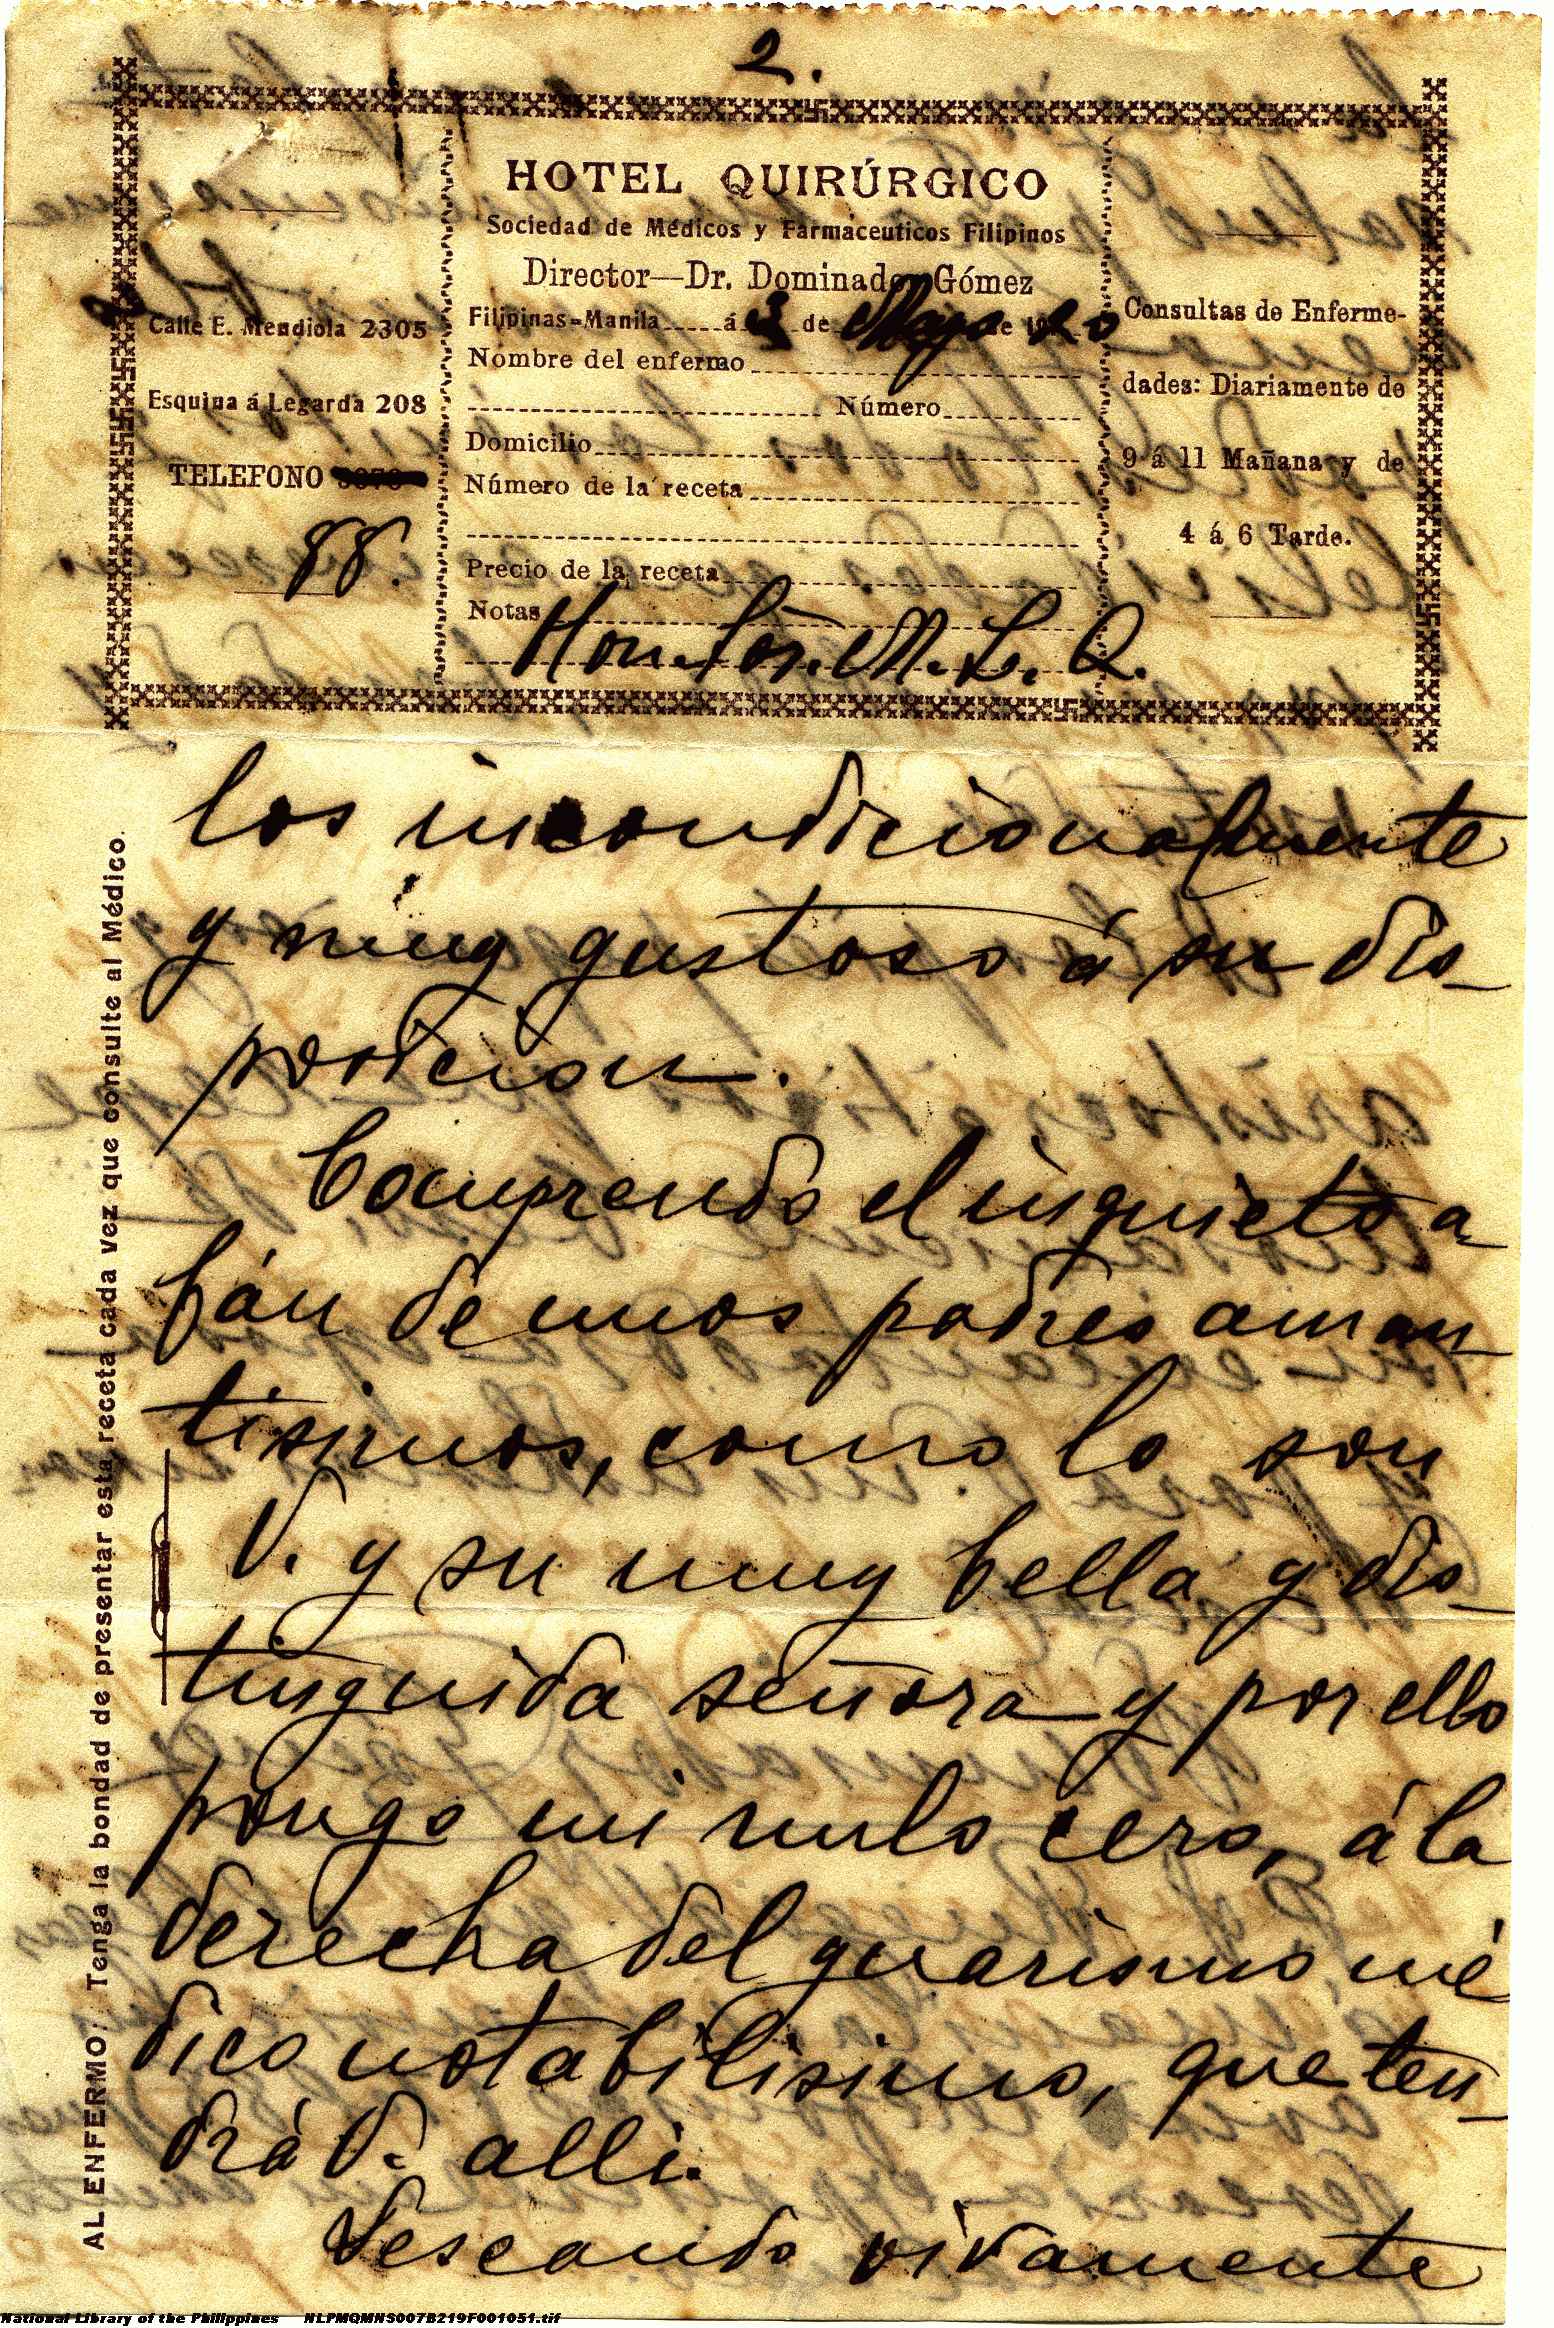 2.
HOTEL QUIRÚRGICO
Sociedad de Médicos y Farmaceuticos Filipinos
Director—Dr. Dominador Gómez
Filipinas-Manila á 3 de Mayo de 19 20
Nombre del enfermo
Número
Domicilio
Número de la receta
Precio de la receta
Notas
Hon. Sor. M. L. Q.
Calle E. Mendiola 2305
Esquina á Legarda 208
TELEFONO
88.
Consultas de Enferme-
dades: Diariamente de
9 á 11 Mañana y de
4 á 6 Tarde.
los incondicionalmente
y muy gustoso á su dis-
posicion.
Comprendo el inquieto a-
fán de unos padres aman-
tisimos, como lo son
V. y su muy bella y dis-
tinguida señora y por ello
pongo mi nulo cero, á la
derecha del guarismo mé
dico notabilisimo, que ten-
drá V. alli.
Deseando vivamente
AL ENFERMO: Tenga la bondad de presentar esta receta cada vez que consulte al Médico.
National Library of the Philippines NLPMQMNS007B219F001051.tif